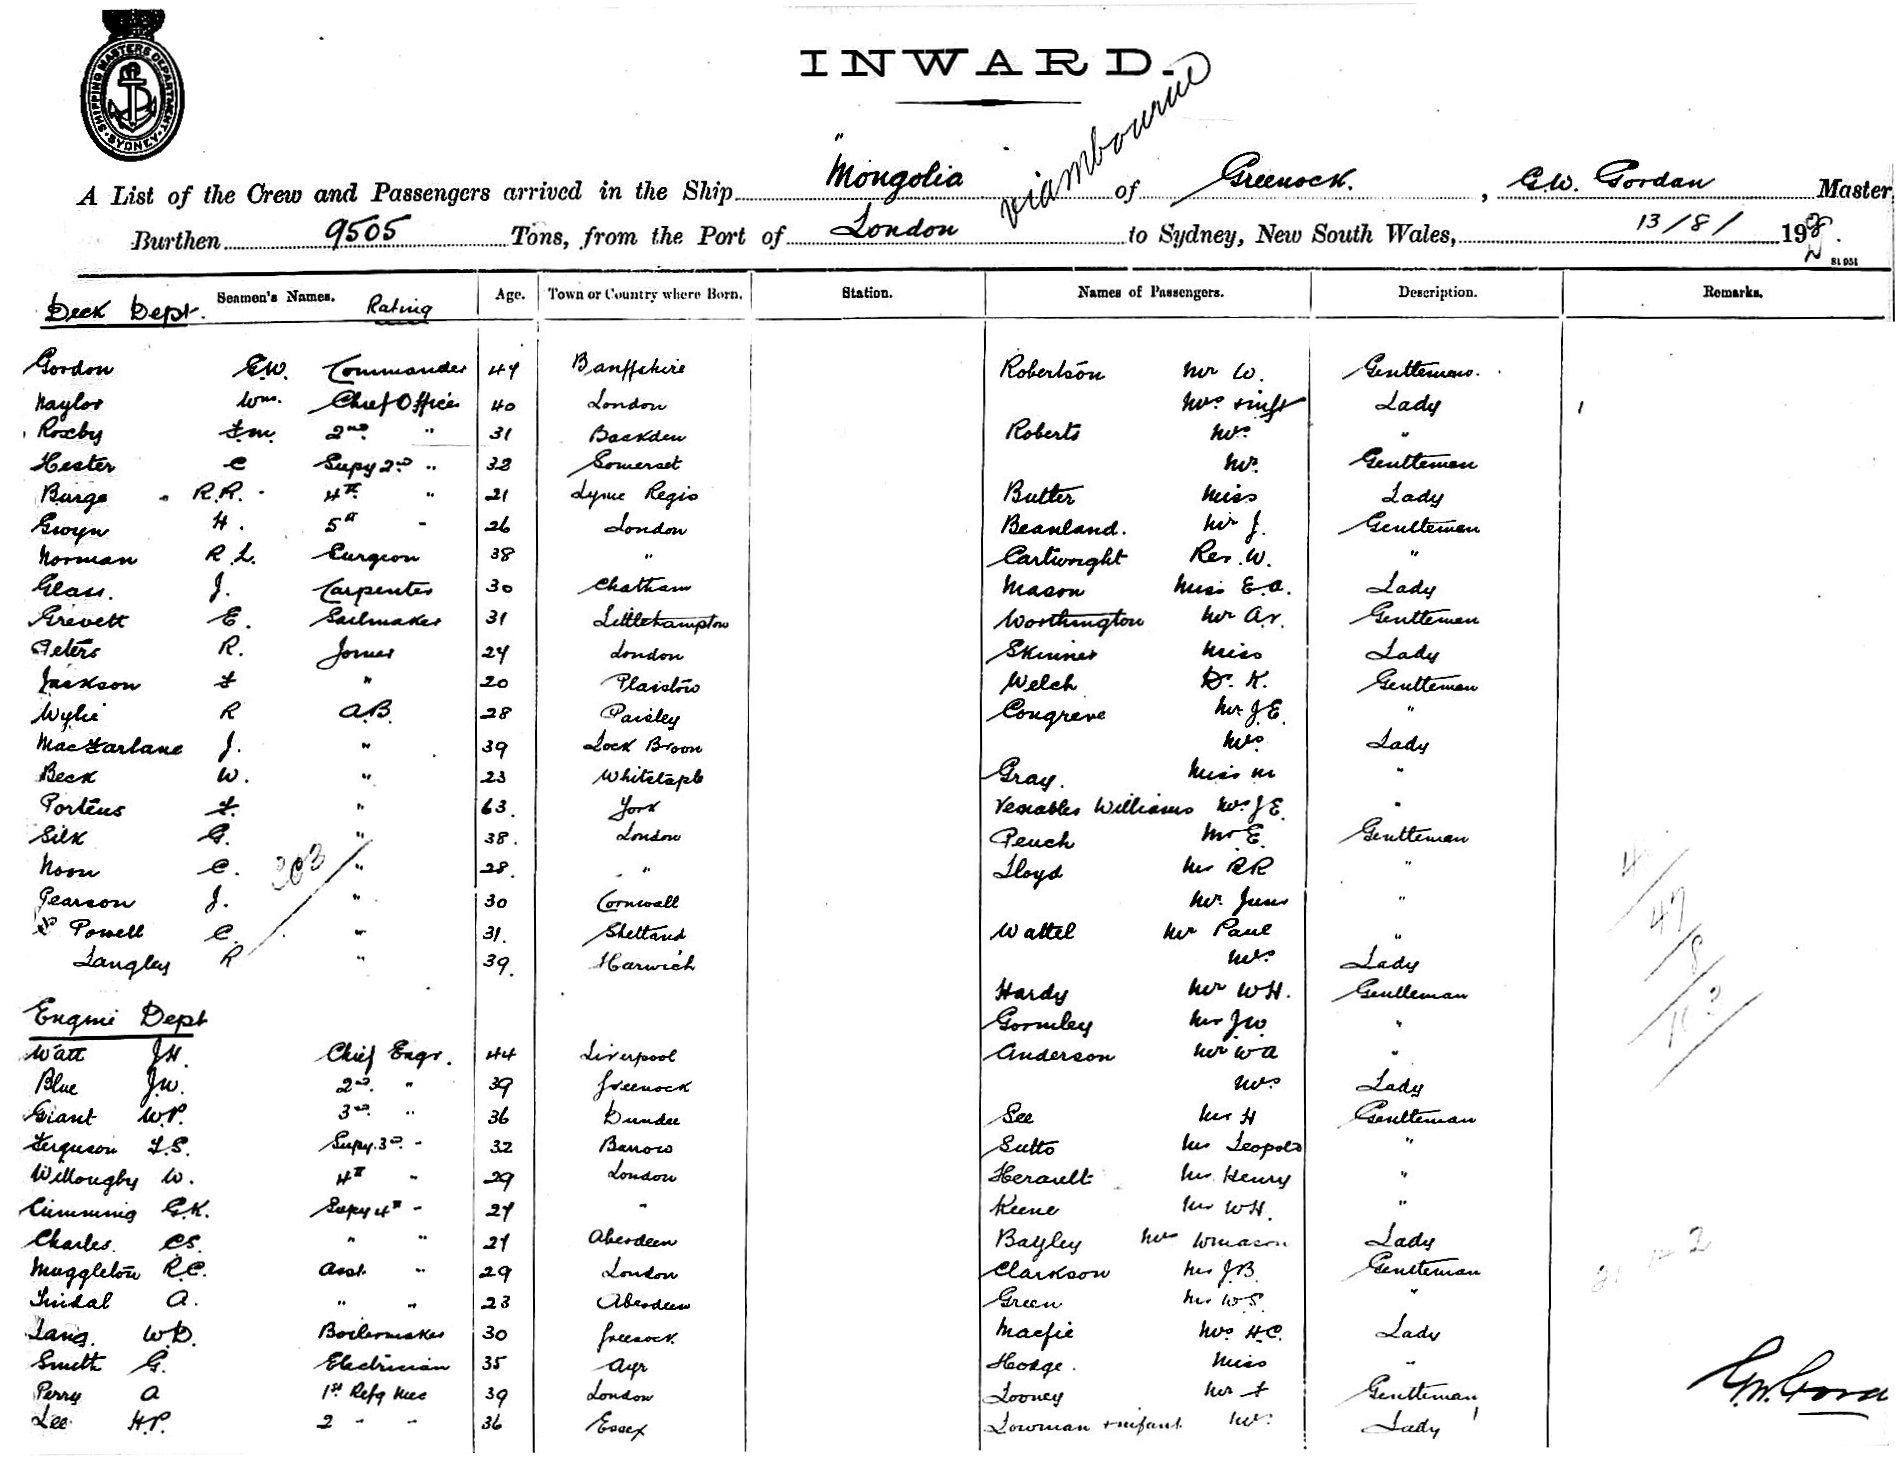 SHIPPING MASTERS DEPARTMENT
SYDNEY
INWARD.
via
"Mongolia of Greenock.
A List of the Crew and Passengers arrived in the Ship Mongolia of Greenock. , G.W. Gordon Master
Burthen 9505 Tons, from the Port of London to Sydney, New South Wales, 13/8/ 19
Seamen's Names. Rating Age. Town or Country where Born. Station. Names of Passengers. Description. Remarks.
Deck Dept.
Gordon G.W. Commander 47 Banffshire Robertson Mr W. Gentleman
Naylor Wm. Chief Officer 40 London Mrs + inft Lady 1
Roxby F.M. 2nd " 31 Roberts Mrs "
Hester C Supy 2nd " 32 Somerset Mr. Gentleman
Burge R.R. 4th " 21 Lyme Regis Butter Miss Lady
Gwyn H. 5th " 26 London Beanland. Mr J. Gentleman
Norman R.L. Surgeon 38 " Cartwright Rev. W. "
Glass. J. Carpenter 30 Chatham Mason Miss E.A. Lady
Grevett E. Sailmaker 31 Littlehampton Worthington Mr A.V. Gentleman
Peters R. Joiner 24 London Skinner Miss Lady
Jackson F " 20 Plaistow Welch Dr. K. Gentleman
Wylie R A.B. 28 Paisley Congreve Mr J.E. "
MacFarlane J. " 39 Lock Broon Mrs Lady
Beck W. " 23 Whitstaple Gray. Miss M "
Porteus F. " 63. York Venables Williams Mrs J E "
Silk G. " 38. London Peuch Mr E. Gentleman
Noon C. " 28. " Lloyd Mr R R "
Pearson J. " 30 Cornwall Mr. Junr "
Powell C. " 31. Shetland Wattel Mr Paul "
Langley R " 39. Harwich Mrs Lady
Hardy Mr W H. Gentleman
Engine Dept Gormley Mr J W "
Watt J.H. Chief Engr. 44 Liverpool Anderson Mr W A "
Blue J.W. 2nd " 39 Greenock Mrs Lady
Grant W.P. 3rd " 36 Dundee See Mr H Gentleman
Ferguson F.S. Supy. 3rd " 32 Barrow Sutto Mr Leopold "
Willougby W. 4th " 29 London Herault Mr Henry "
Cumming G.K. Supy 4th " 27 " Keene Mr W H. "
Charles. C S. " " 27 Aberdeen Bayley Mrs Lady
Muggleton R.C. Asst " 29 London Clarkson Mr J.B. Gentleman
Tindal A. " " 23 Aberdeen Green Mr W S. "
Lang. W.D. Boilermaker 30 Greenock Macfie Mrs H.C. Lady
Smith G. Electrician 35 Ayr Hodge. Miss "
Perry A 1st Refg Mec 39 London Looney Mr F Gentleman
Lee H.P. 2 " " 36 Essex Lowman + infant Mrs Lady 1